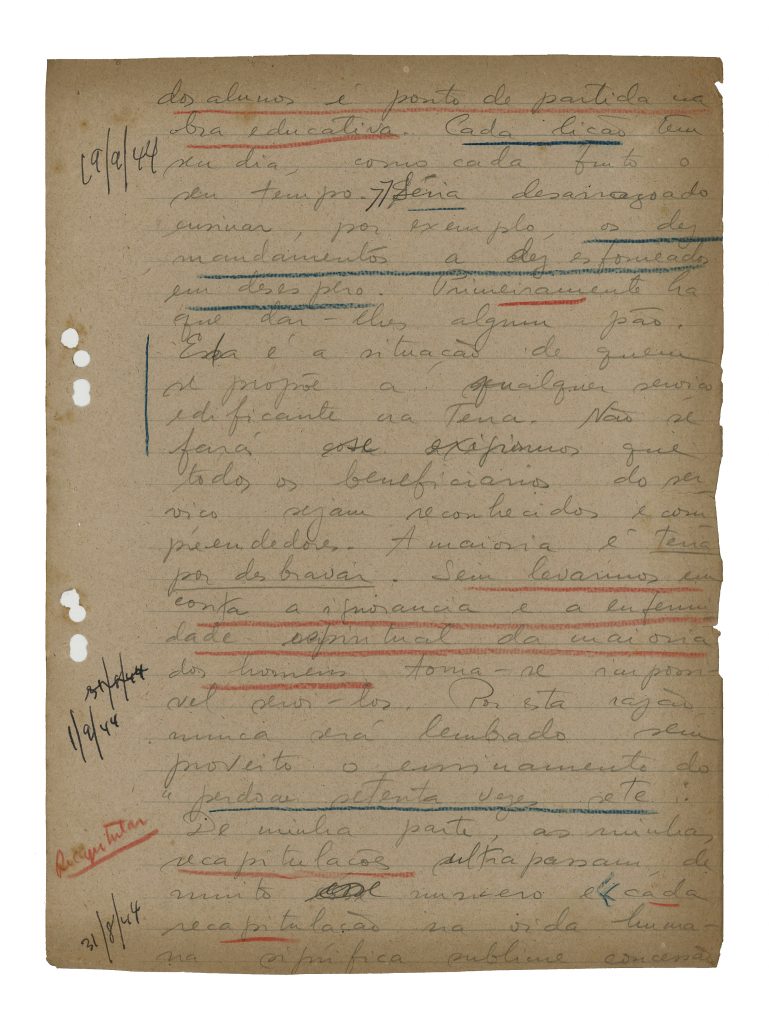 dos alunos é ponto de partida na
obra educativa. Cada lição tem
19/9/44
seu dia, como cada fruto o
seu tempo. Seria desarrazoado
ensinar, por exemplo, os dez
mandamentos a dez esfomeados
em desespero. Primeiramente ha
que dar-lhes algum pão.
Essa é a situação de quem
se propõe a qualquer serviço
edificante na Terra. Não se
fará exigirmos que
todos os beneficiarios do ser
viço sejam reconhecidos e com
preendedores. A maioria é terra
por desbravar. Sem levarmos em
conta a ignorancia e a enfermi
dade espiritual da maioria
dos homens torna-se impossi
31/8/44
vel servi-los. Por esta razão
1/9/44
nunca será lembrado sem
proveito o ensinamento do
"perdoar setenta vezes sete".
De minha parte, as minhas
Recapitular
recapitulações ultrapassam de
muito numero e cada
31/8/44
recapitulação na vida huma-
na significa sublime concessão